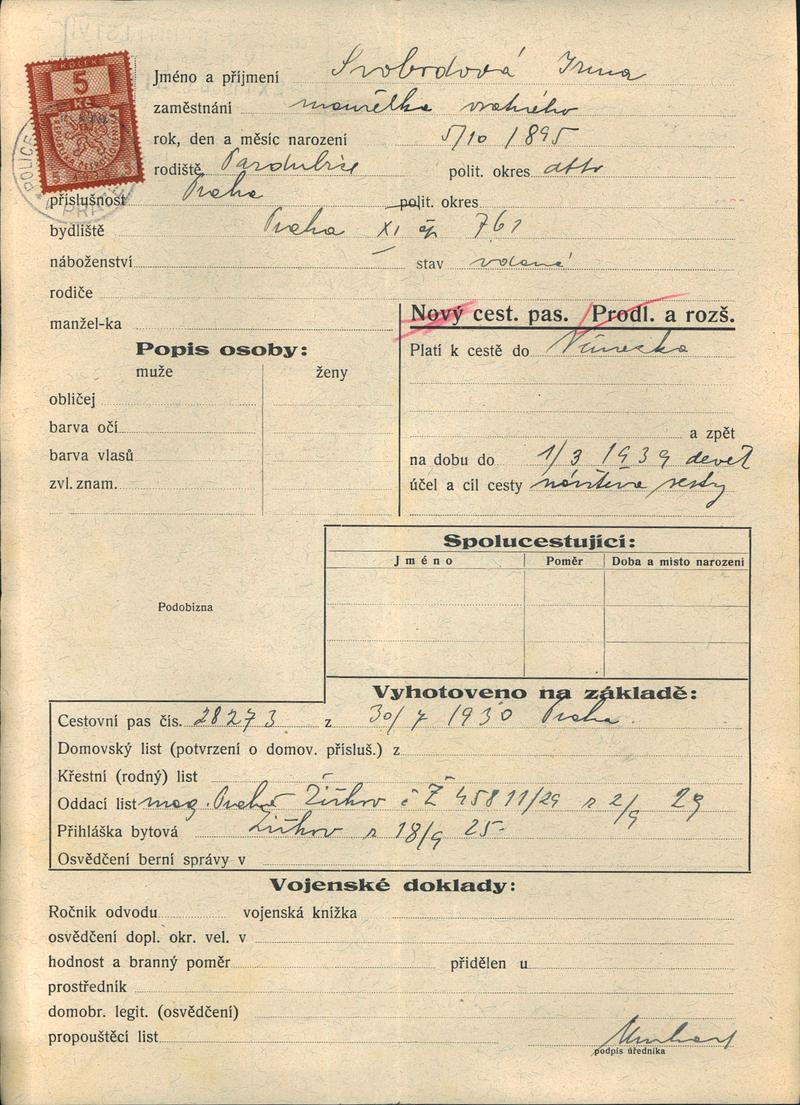 KOLEK
5
Kč
POLICE
PRA
Jméno a příjmení Svobodová Irma
zaměstnání manželka vrchního
rok, den a měsíc narození 5/10 1895
rodiště Pardubice polit. okres detto
příslušnost Praha polit. okres
bydliště Praha XI čp 761
náboženství stav vdaná
rodiče
manžel-ka
Nový cest. pas. Prodl. a rozš.
Popis osoby:
muže ženy
obličej
barva očí
barva vlasů
zvl. znam.
Platí k cestě do Německa
a zpět
na dobu do 1/3 1939 devět
účel a cíl cesty návštěva sestry
Spolucestující:
Jméno Poměr Doba a místo narození
Podobizna
Vyhotoveno na základě:
Cestovní pas čís. 28273 z 30/7 1930 Praha.
Domovský list (potvrzení o domov. přísluš.) z
Křestní (rodný) list
Oddací list mag. Praha Žižkov č Ž 45811/29 z 2/9 29
Přihláška bytová Žižkov z 18/9 25
Osvědčení berní správy v
Vojenské doklady:
Ročník odvodu vojenská knížka
osvědčení dopl. okr. vel. v
hodnost a branný poměr přidělen u
prostředník
domobr. legit. (osvědčení)
propouštěcí list
podpis úředníka